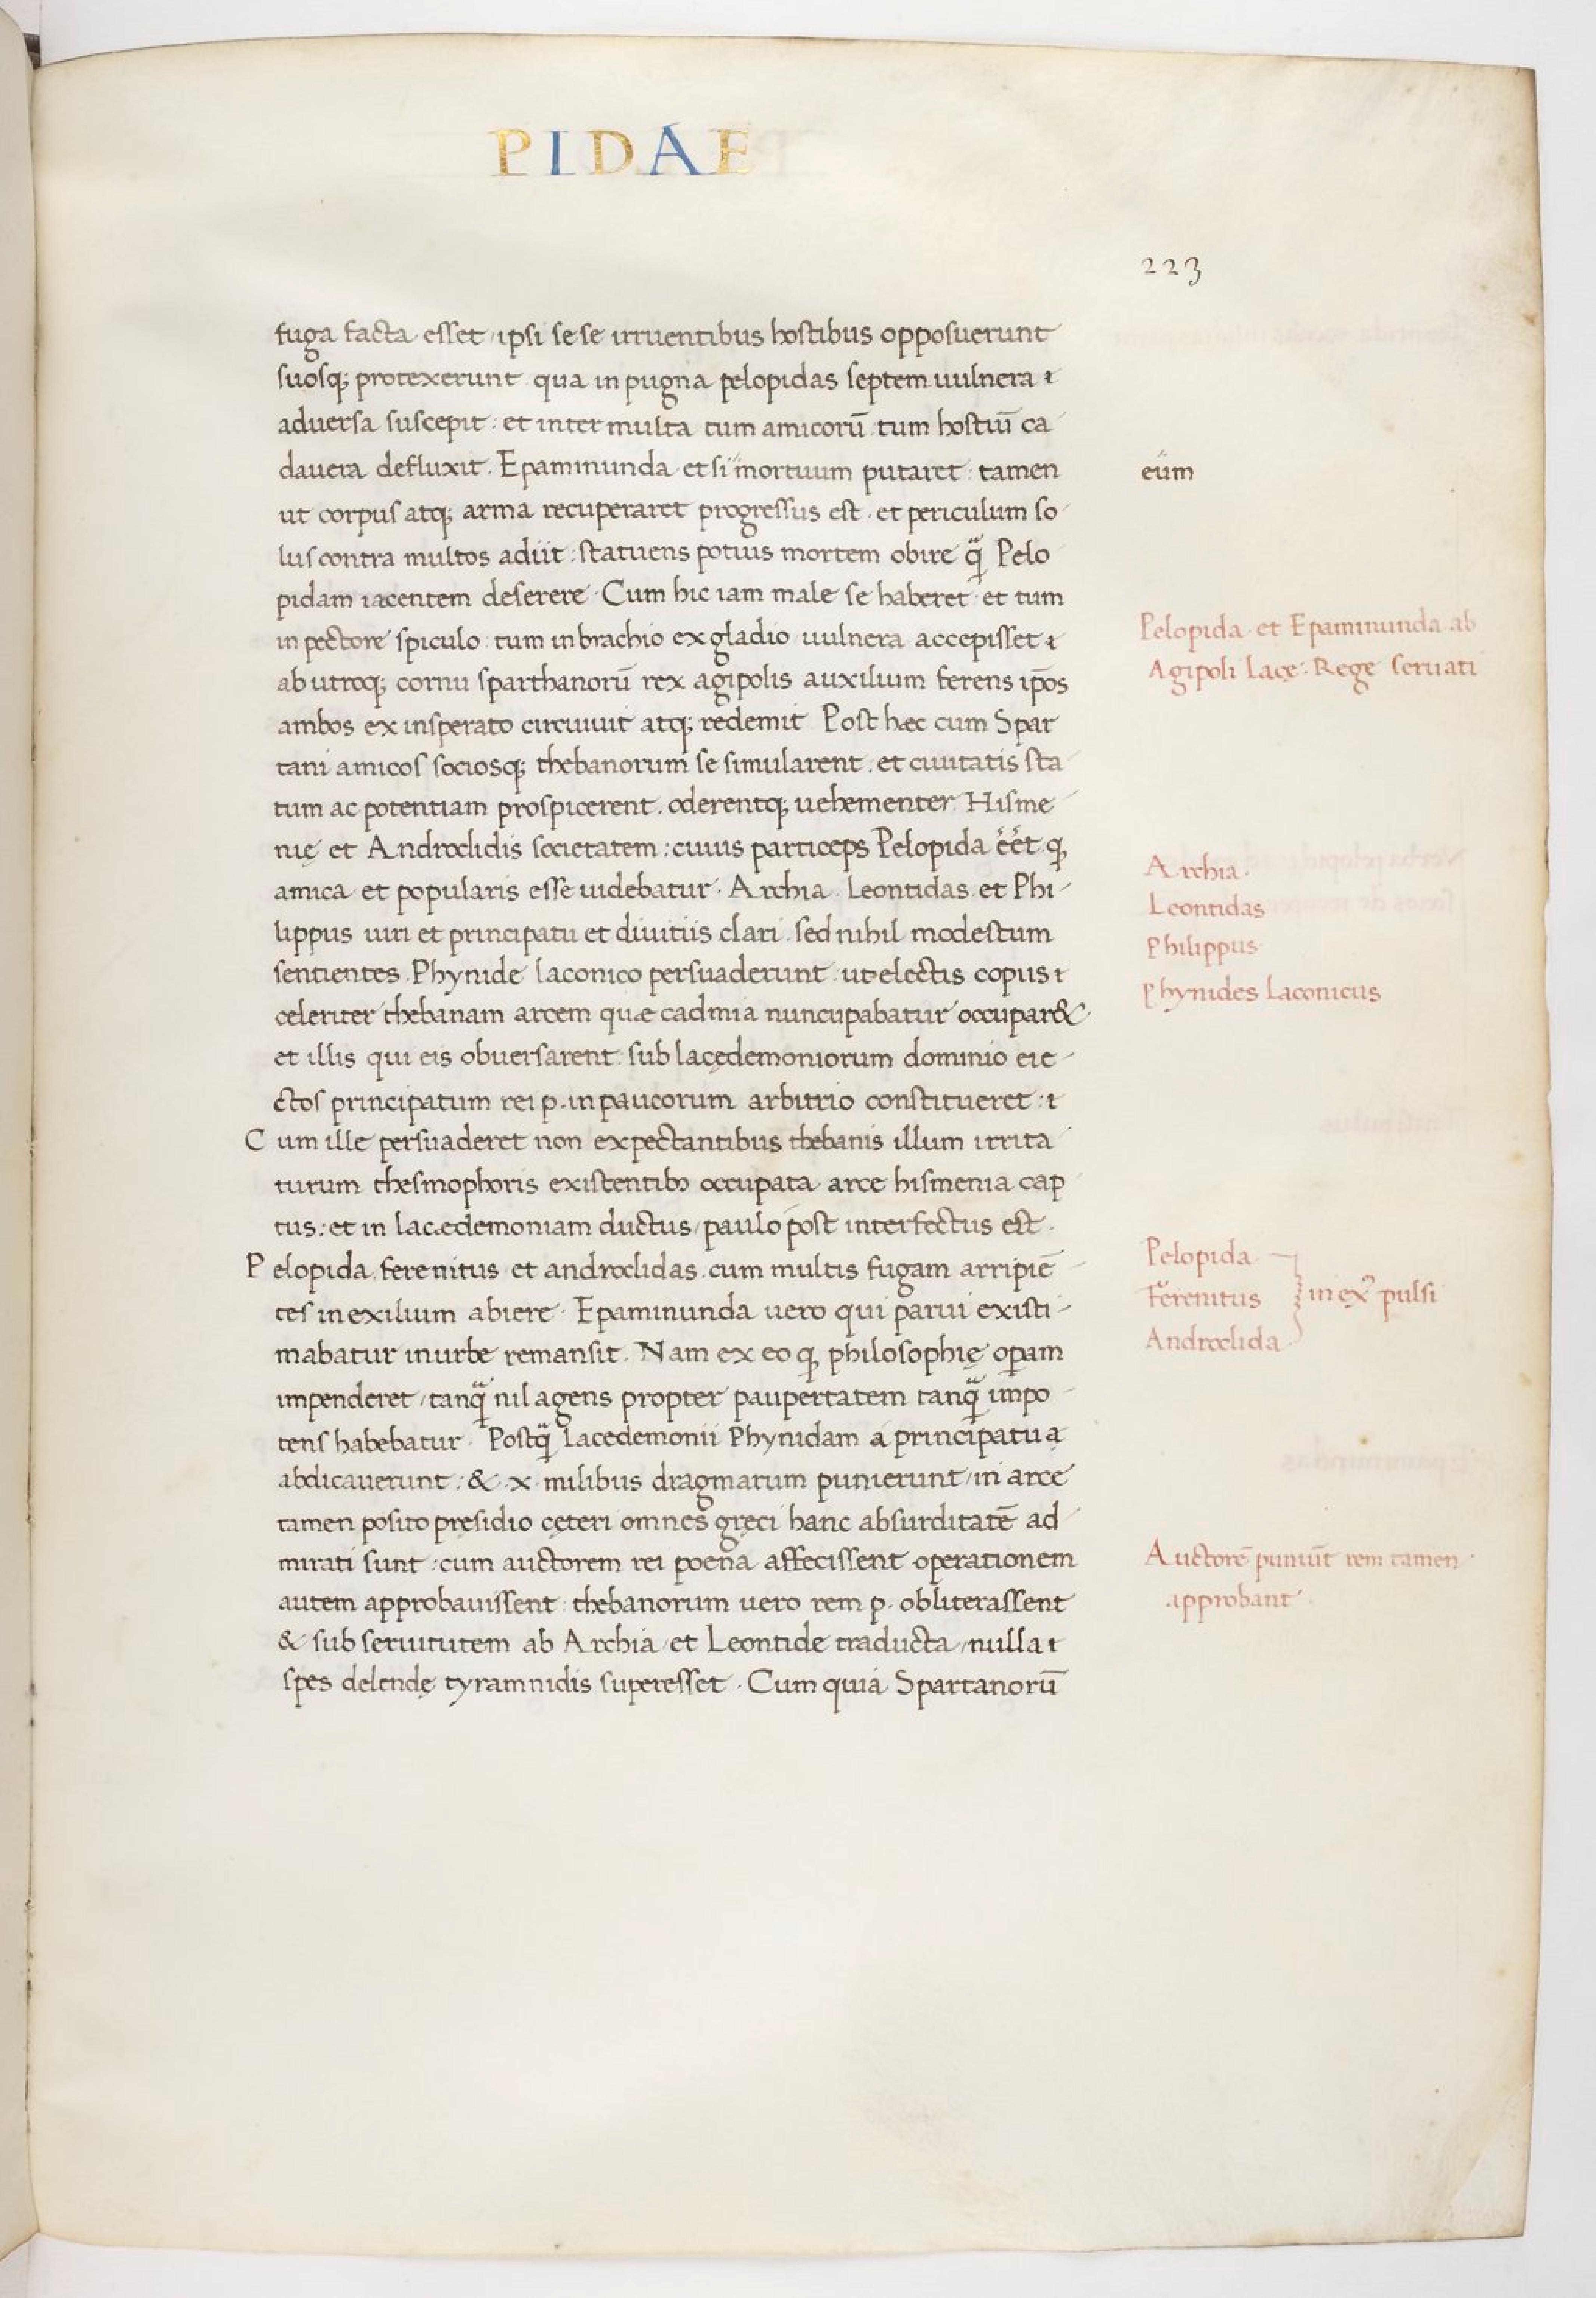 PIDAE
223
fuga facta esset, ipsi sese irruentibus hostibus opposuerunt
suosq; protexerunt qua in pugna pelopidas septem uulnera
aduersa suscepit: et inter multa tum amicorū tum hostiū ca
dauera defluxit. Epaminunda et si mortuum putaret: tamen
eum
ut corpus atq; arma recuperaret progressus est. et periculum so
lus contra multos adiit: statuens potius mortem obire q̃ Pelo
pidam iacentem deserere. Cum hic iam male se haberet et tum
in pectore spiculo tum in brachio ex gladio uulnera accepisset
ab utroq; cornu sparthanorū rex agipolis auxilium ferens ip̄os
ambos ex insperato circuiuit atq; redemit Post hæc cum Spar
tani amicos sociosq; thebanorum se simularent. et ciuitatis sta
tum ac potentiam prospicerent. oderentq; uehementer Hisme
nię et Androclidis societatem: cuius particeps Pelopida ēēt q;
amica et popularis esse uidebatur. Archia. Leontidas et Phi
lippus uiri et principatu et diuitiis clari sed nihil modestum
sentientes. Phynide laconico persuaderunt ut electis copiis
celeriter thebanam arcem quæ cadmia nuncupabatur occupar&
et illis qui eis obuersarent sub lacędemoniorum dominio eie
ctos principatum rei p. in paucorum arbitrio constitueret:
Cum ille persuaderet non expectantibus thebanis illum irrita
turum thesmophoris existentibꝫ occupata arce hismenia cap
tus: et in lacædemoniam ductus, paulo post interfectus est.
Pelopida, ferenitus et androclidas cum multis fugam arripiē
tes in exilium abiere. Epaminunda uero qui parui existi-
mabatur in urbe remansit. Nam ex eo q; philosophię operam
impenderet, tanq̃ nil agens propter paupertatem tanq̃ impo
tens habebatur. Postq̃ Lacedemonii Phynidam a principatu
abdicauerunt: & .x. milibus dragmarum punierunt, in arce
tamen posito presidio cęteri omnes gręci hanc absurditatē ad
mirati sunt: cum auctorem rei poena affecissent operationem
autem approbauissent: thebanorum uero rem p. obliterassent
& sub seruitutem ab Archia et Leontide traducta, nulla
spes delendę tyramnidis superesset. Cum quia Spartanorū
Pelopida et Epaminunda ab
Agipoli Lacę: Rege seruati
Archia.
Leontidas
Philippus
Phynides Laconicus
Pelopida
Ferenitus in exº pulsi
Androclida
Auctorē puniūt rem tamen
approbant